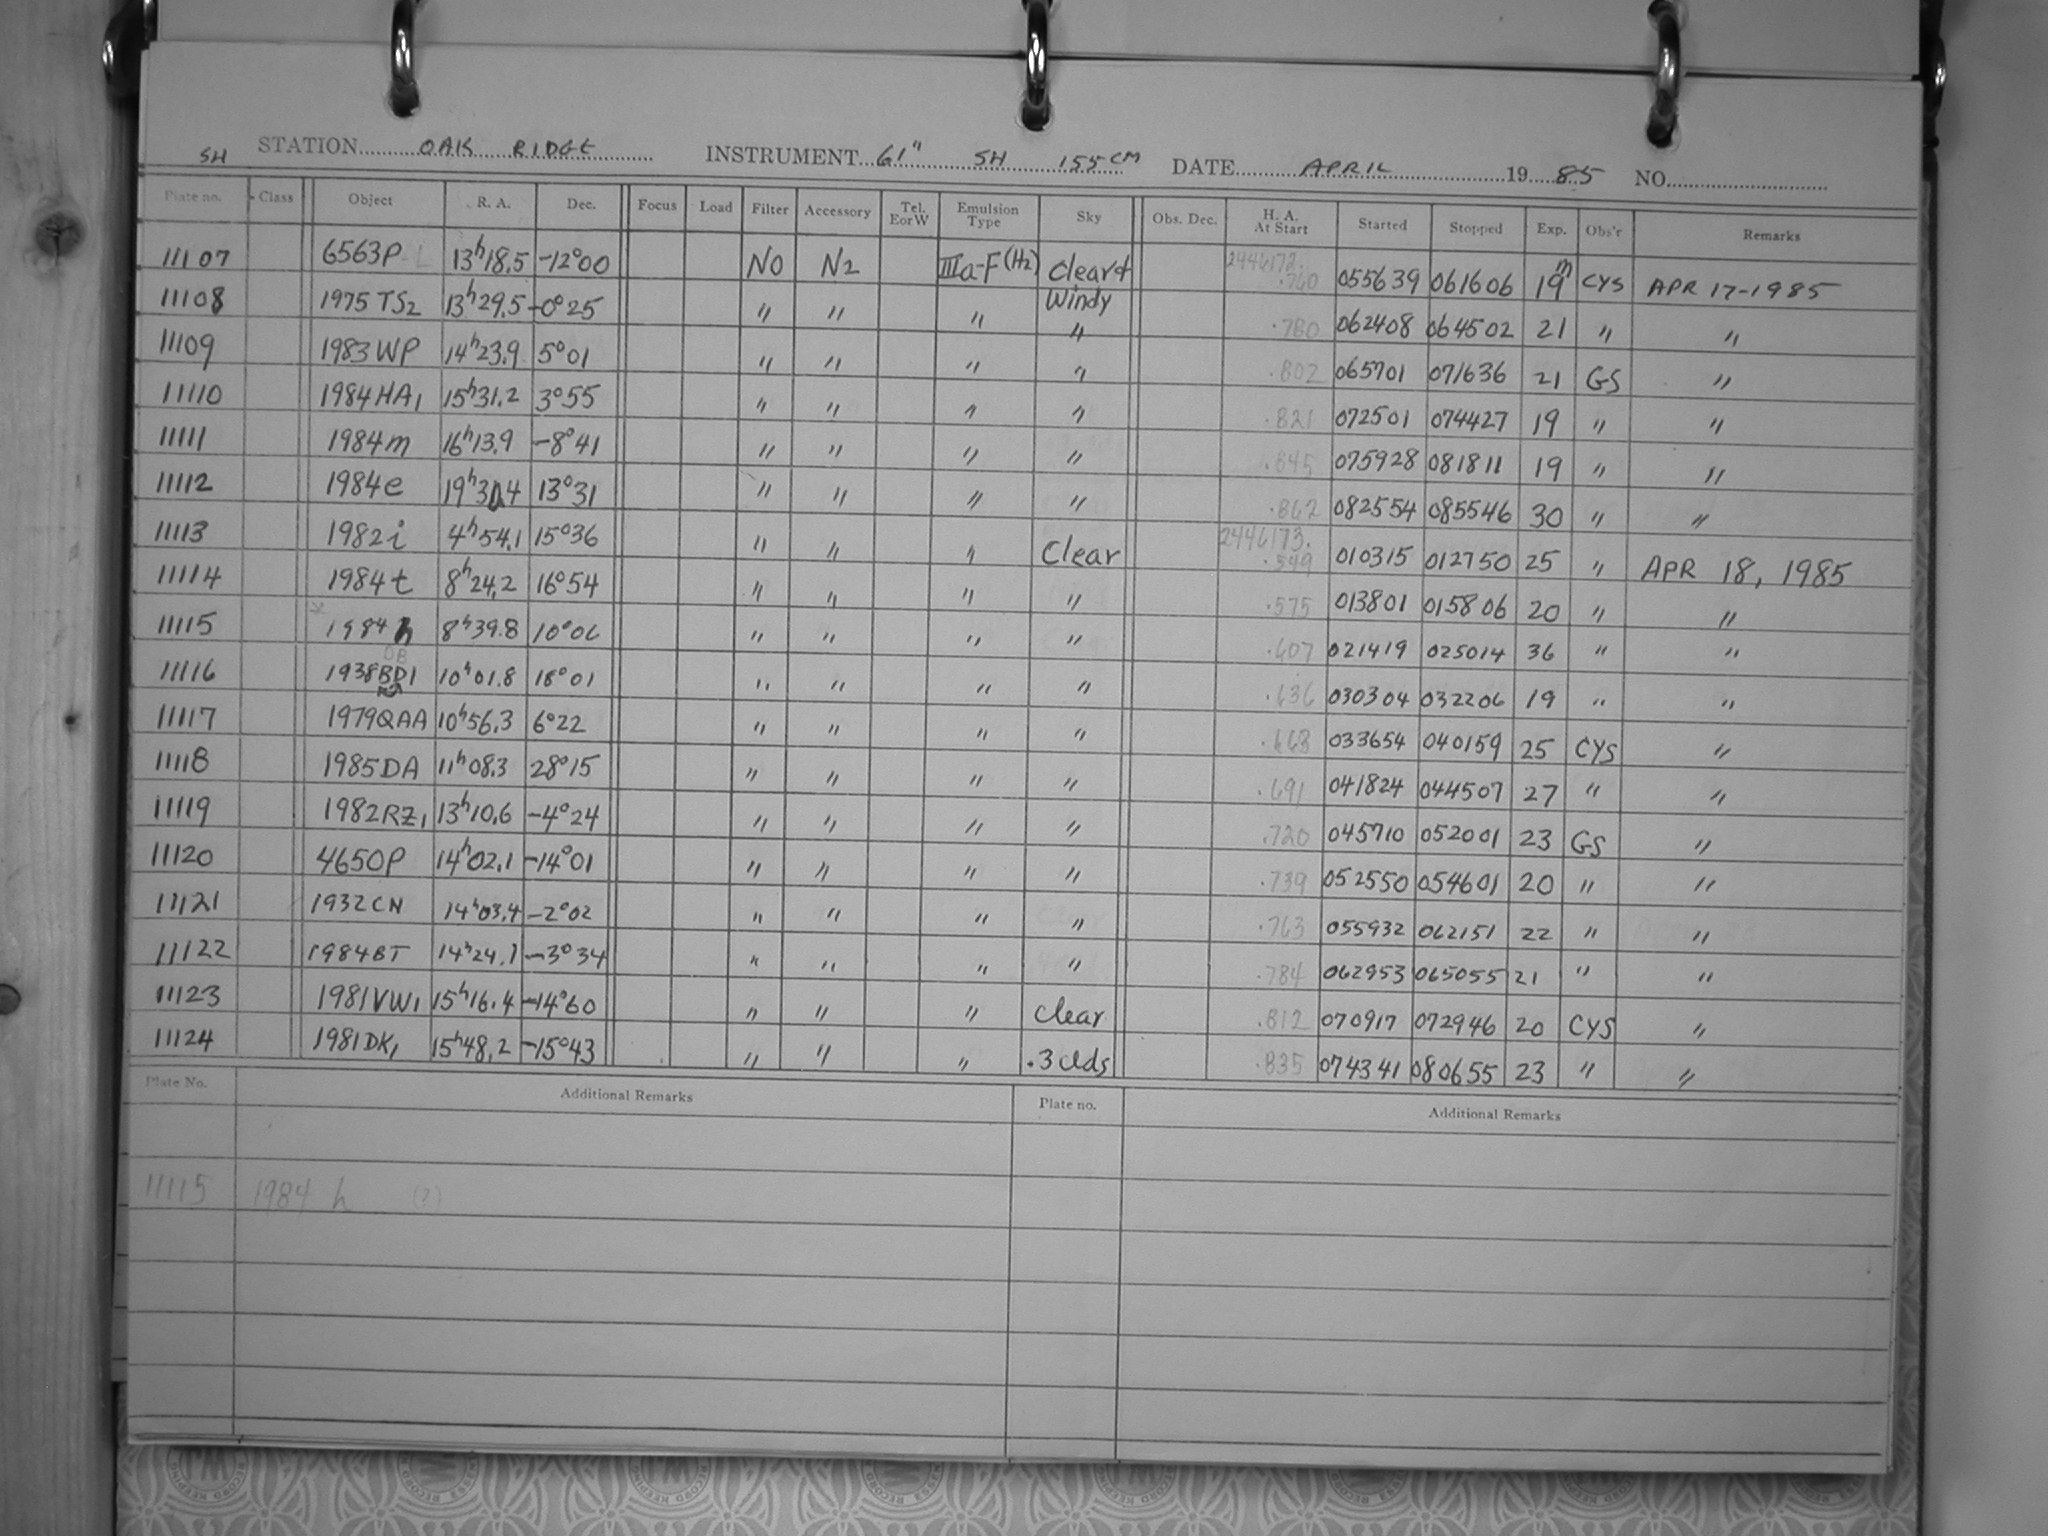 SH STATION OAK RIDGE INSTRUMENT 61" SH 155 CM DATE APRIL 19 85 NO.
Plate no. Class Object R. A. Dec. Focus Load Filter Accessory Tel. E or W Emulsion Type Sky Obs. Dec. H. A. At Start Started Stopped Exp. Obs'r Remarks
11107 6563P-L 13h18.5 -12°00 NO N2 IIIa-F (H2) Clear & Windy 2446172. .760 055639 061606 19m CYS APR 17-1985
11108 1975 TS2 13h29.5 -0°25 " " " " .780 062408 064502 21 " "
11109 1983 WP 14h23.9 5°01 " " " " .802 065701 071636 21 GS "
11110 1984 HA1 15h31.2 3°55 " " " " .821 072501 074427 19 " "
11111 1984m 16h13.9 -8°41 " " " " .845 075928 081811 19 " "
11112 1984e 19h30.4 13°31 " " " " .862 082554 085546 30 " "
11113 1982i 4h54.1 15°36 " " " Clear 2446173. .549 010315 012750 25 " APR 18, 1985
11114 1984t 8h24.2 16°54 " " " " .575 013801 015806 20 " "
11115 1984 h 8h39.8 10°06 " " " " .607 021419 025014 36 " "
11116 1938BD1 10h01.8 18°01 " " " " .636 030304 032206 19 " "
11117 1979QAA 10h56.3 6°22 " " " " .668 033654 040159 25 CYS "
11118 1985DA 11h08.3 28°15 " " " " .691 041824 044507 27 " "
11119 1982RZ1 13h10.6 -4°24 " " " " .720 045710 052001 23 GS "
11120 4650P 14h02.1 -14°01 " " " " .739 052550 054601 20 " "
11121 1932CN 14h03.4 -2°02 " " " " .763 055932 062151 22 " "
11122 1984BT 14h24.1 -3°34 " " " " .784 062953 065055 21 " "
11123 1981VW1 15h16.4 -14°60 " " " clear .812 070917 072946 20 CYS "
11124 1981DK1 15h48.2 -15°43 " " " .3 Clds .835 074341 080655 23 " "
Plate No. Additional Remarks Plate no. Additional Remarks
11115 1984 h (?)